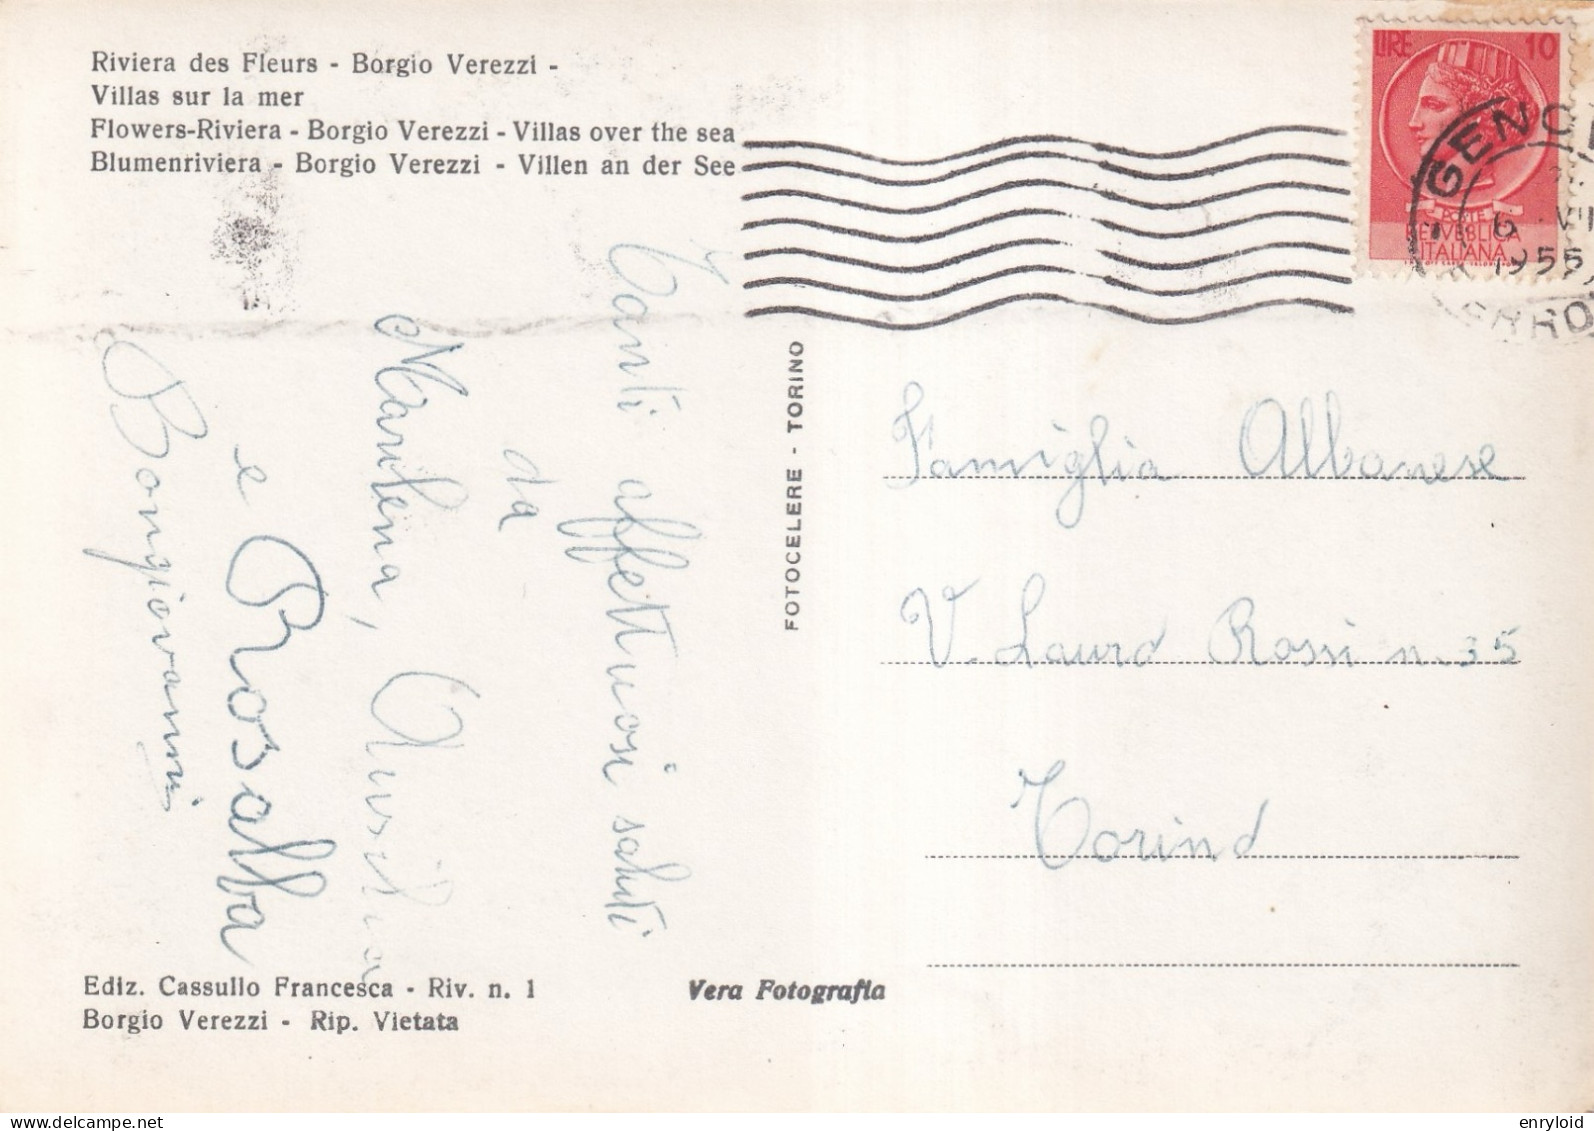 Riviera des Fleurs - Borgio Verezzi -
Villas sur la mer
Flowers-Riviera - Borgio Verezzi - Villas over the sea
Blumenriviera - Borgio Verezzi - Villen an der See
LIRE 10
POSTE
REPVBBLICA
ITALIANA
GENO
6 VII
1955
FERRO
Tanti affettuosi saluti
da
Marilena, Ausilia
e Rosalba
Bongiovanni
FOTOCELERE - TORINO
Famiglia Albanese
V. Lauro Rossi n. 35
Torino
Ediz. Cassullo Francesca - Riv. n. 1
Borgio Verezzi - Rip. Vietata
Vera Fotografia
delcampe.net
enryloid